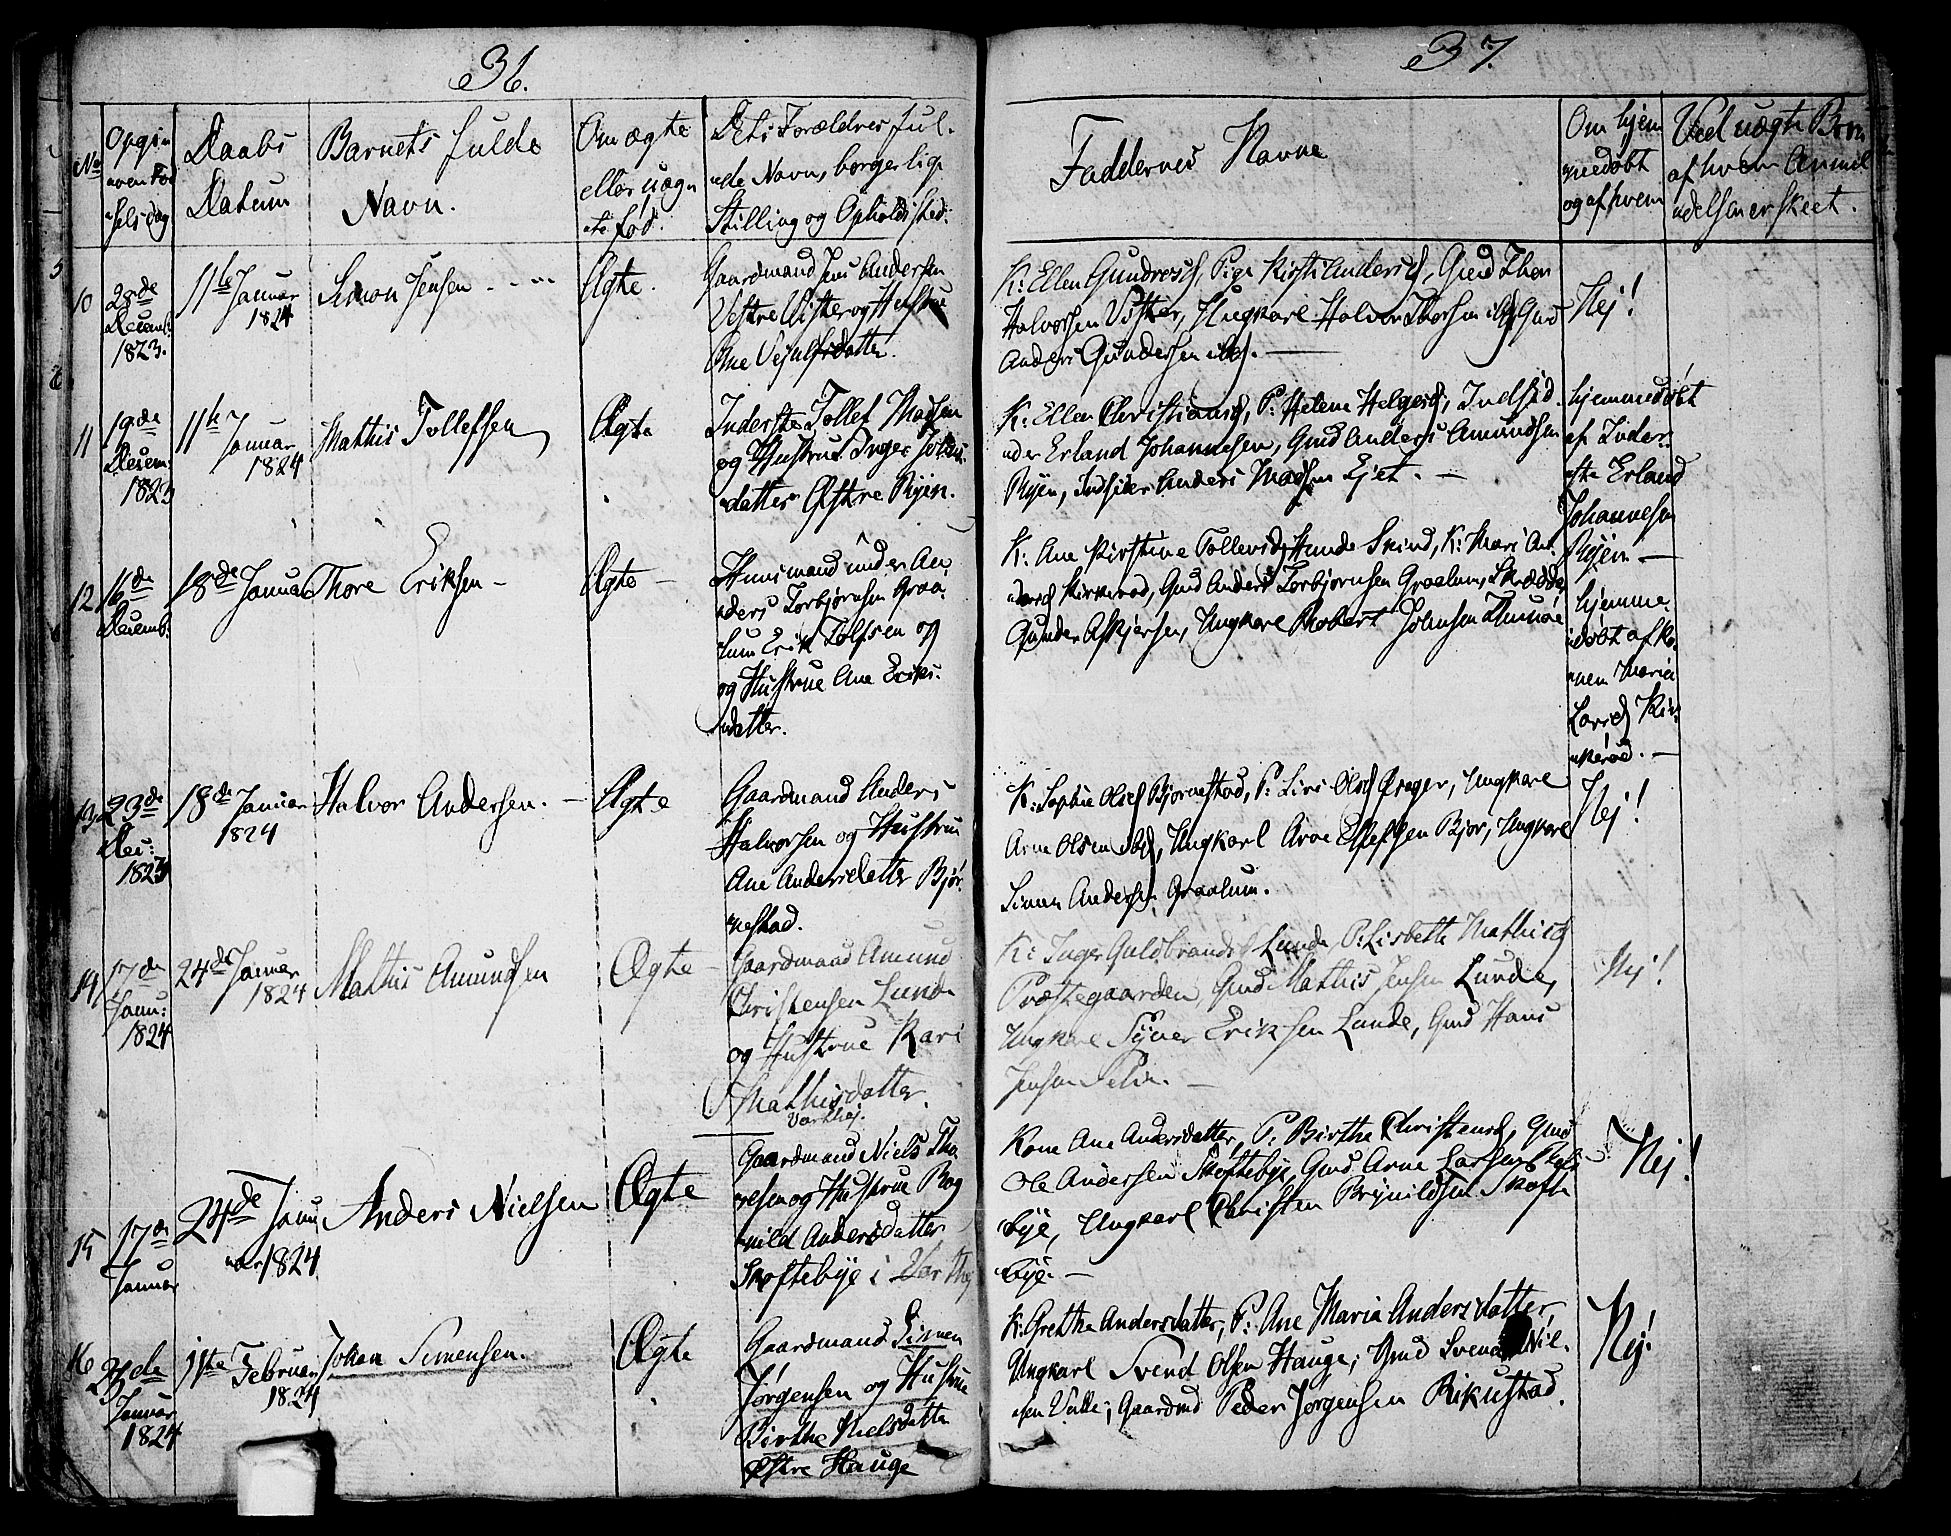 36.
No
Opgi-
ven Fød-
selsdag
Daabs
Datum
Barnets fulde
Navn.
Om ægte
eller uæg-
te fød.
Dets Forældres ful-
de Navn, borgerlige
Stilling og Opholdssted.
10
28de
Decemb:
1823.
11te Januar
1824
Simon Jensen
Ægte.
Gaardmand Jens Andersen
Vestre Vister og Hustrue
Ane
11
19de
Decem:
1823
11te Januar
1824
Mathis Tollefsen
Ægte
Inderste Tollef Madsen
og Hustrue Inger Johan-
datter Østre Ryen.
12
16de
Decemb:
18de Januar
Thore Eriksen
Ægte
Huusmand under An-
ders Torbjørnsen Graa-
lum Erik Tolfsen og
og Hustrue Ane Eriks-
datter.
13
23de
Dec:
1823
18de Januar
1824
Halvor Andersen.
Ægte
Gaardmand Anders
Halvorsen og Hustrue
Ane Andersdatter Bjør-
nestad.
14
17de
Janu:
1824
24de Januar
1824
Mathis Amundsen
Ægte
Gaardmand Amund
Christensen Lunde
og Hustrue Kari
Mathisdatter.
15
17de
Januar
24de Janu
ar 1824
Anders Nielsen
Ægte
Varthej.
Gaardmand Niels Tho-
resen og Hustrue Rag-
nild Andersdatter
Skoftebye i Varthej
16
Januar
1824
11te Februar
1824
Johan Simensen.
Ægte
Gaardmand Simen
Jørgensen og Hustrue
Birthe Nielsdatter
Østre Hauge
37.
Faddernes Navne
Om hjem-
medøbt
og af hvem
Ved uægte Børn
af hvem Anmel-
delsen er skeet.
K: Ellen Gundersd, Pige Kirsti Andersd, Gmd Thor
Halvorsen Vister, Ungkarl Halvor Thorsen ibd, Gmd
Anders Gundersen ibd.
Nej!
K: Ellen Christiansd, P: Helene Helgesd, Indsid-
der Erland Johannesen, Gmd Anders Amundsen
Ryen, Indsider Anders Madsen Ejet.
hjemmedøbt
af Inder-
ste Erland
Johannesen
Ryen
K: Ane Kirstine Tollevsd, Hunde Skind, K: Mari An-
dersd Kirkerød, Gmd Anders Torbjørnsen Graalum, Skrædder
Gunder Askjersen, Ungkarl Robert Johnsen Thunøe
hjemme-
døbt af Ko-
nen Maria
Larsd Kir-
kerød.
K: Sophie Olsd Bjørnestad, P: Siri Olsd Præger, Ungkarl
Arne Olsen ibd, Ungkarl Arne Bjør, Ungkarl
Simen Andersen Graalum.
Nej!
K: Inger Guldbrandsd Lunde P: Lisbette Mathisd
Præstegaarden, Gmd Mathis Jensen Lunde,
Ungkarl Syver Eriksen Lunde, Gmd Hans
Jensen
Nej!
Kone Ane Andersdatter, P: Birthe Christensd, Gmd
Ole Andersen Skoftebye, Gmd Arne Larsen Skofte-
bye, Ungkarl Christen Brynildsen Skofte-
bye.
Nej!
K: Grethe Andersdatter, P: Ane Maria Andersdatter
Ungkarl Svend Olsen Hauge; Gmd Svend Niel-
sen Gaardmd Peder Jørgensen Rikustad.
Nej!